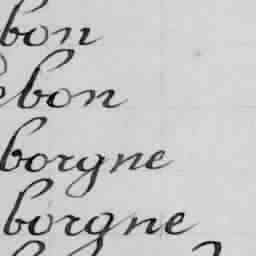 bon
ebon
borgne
borgne